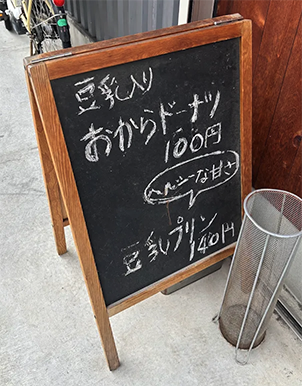 豆乳入り
おからドーナツ
100円
ヘルシーな甘さ
豆乳プリン
140円